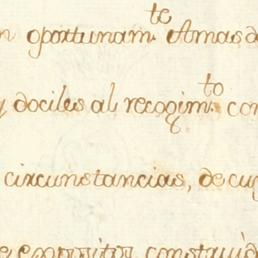 n oportunam.te Amas d
y dociles al recogim.to con
circunstancias, de cu
e expositos construid